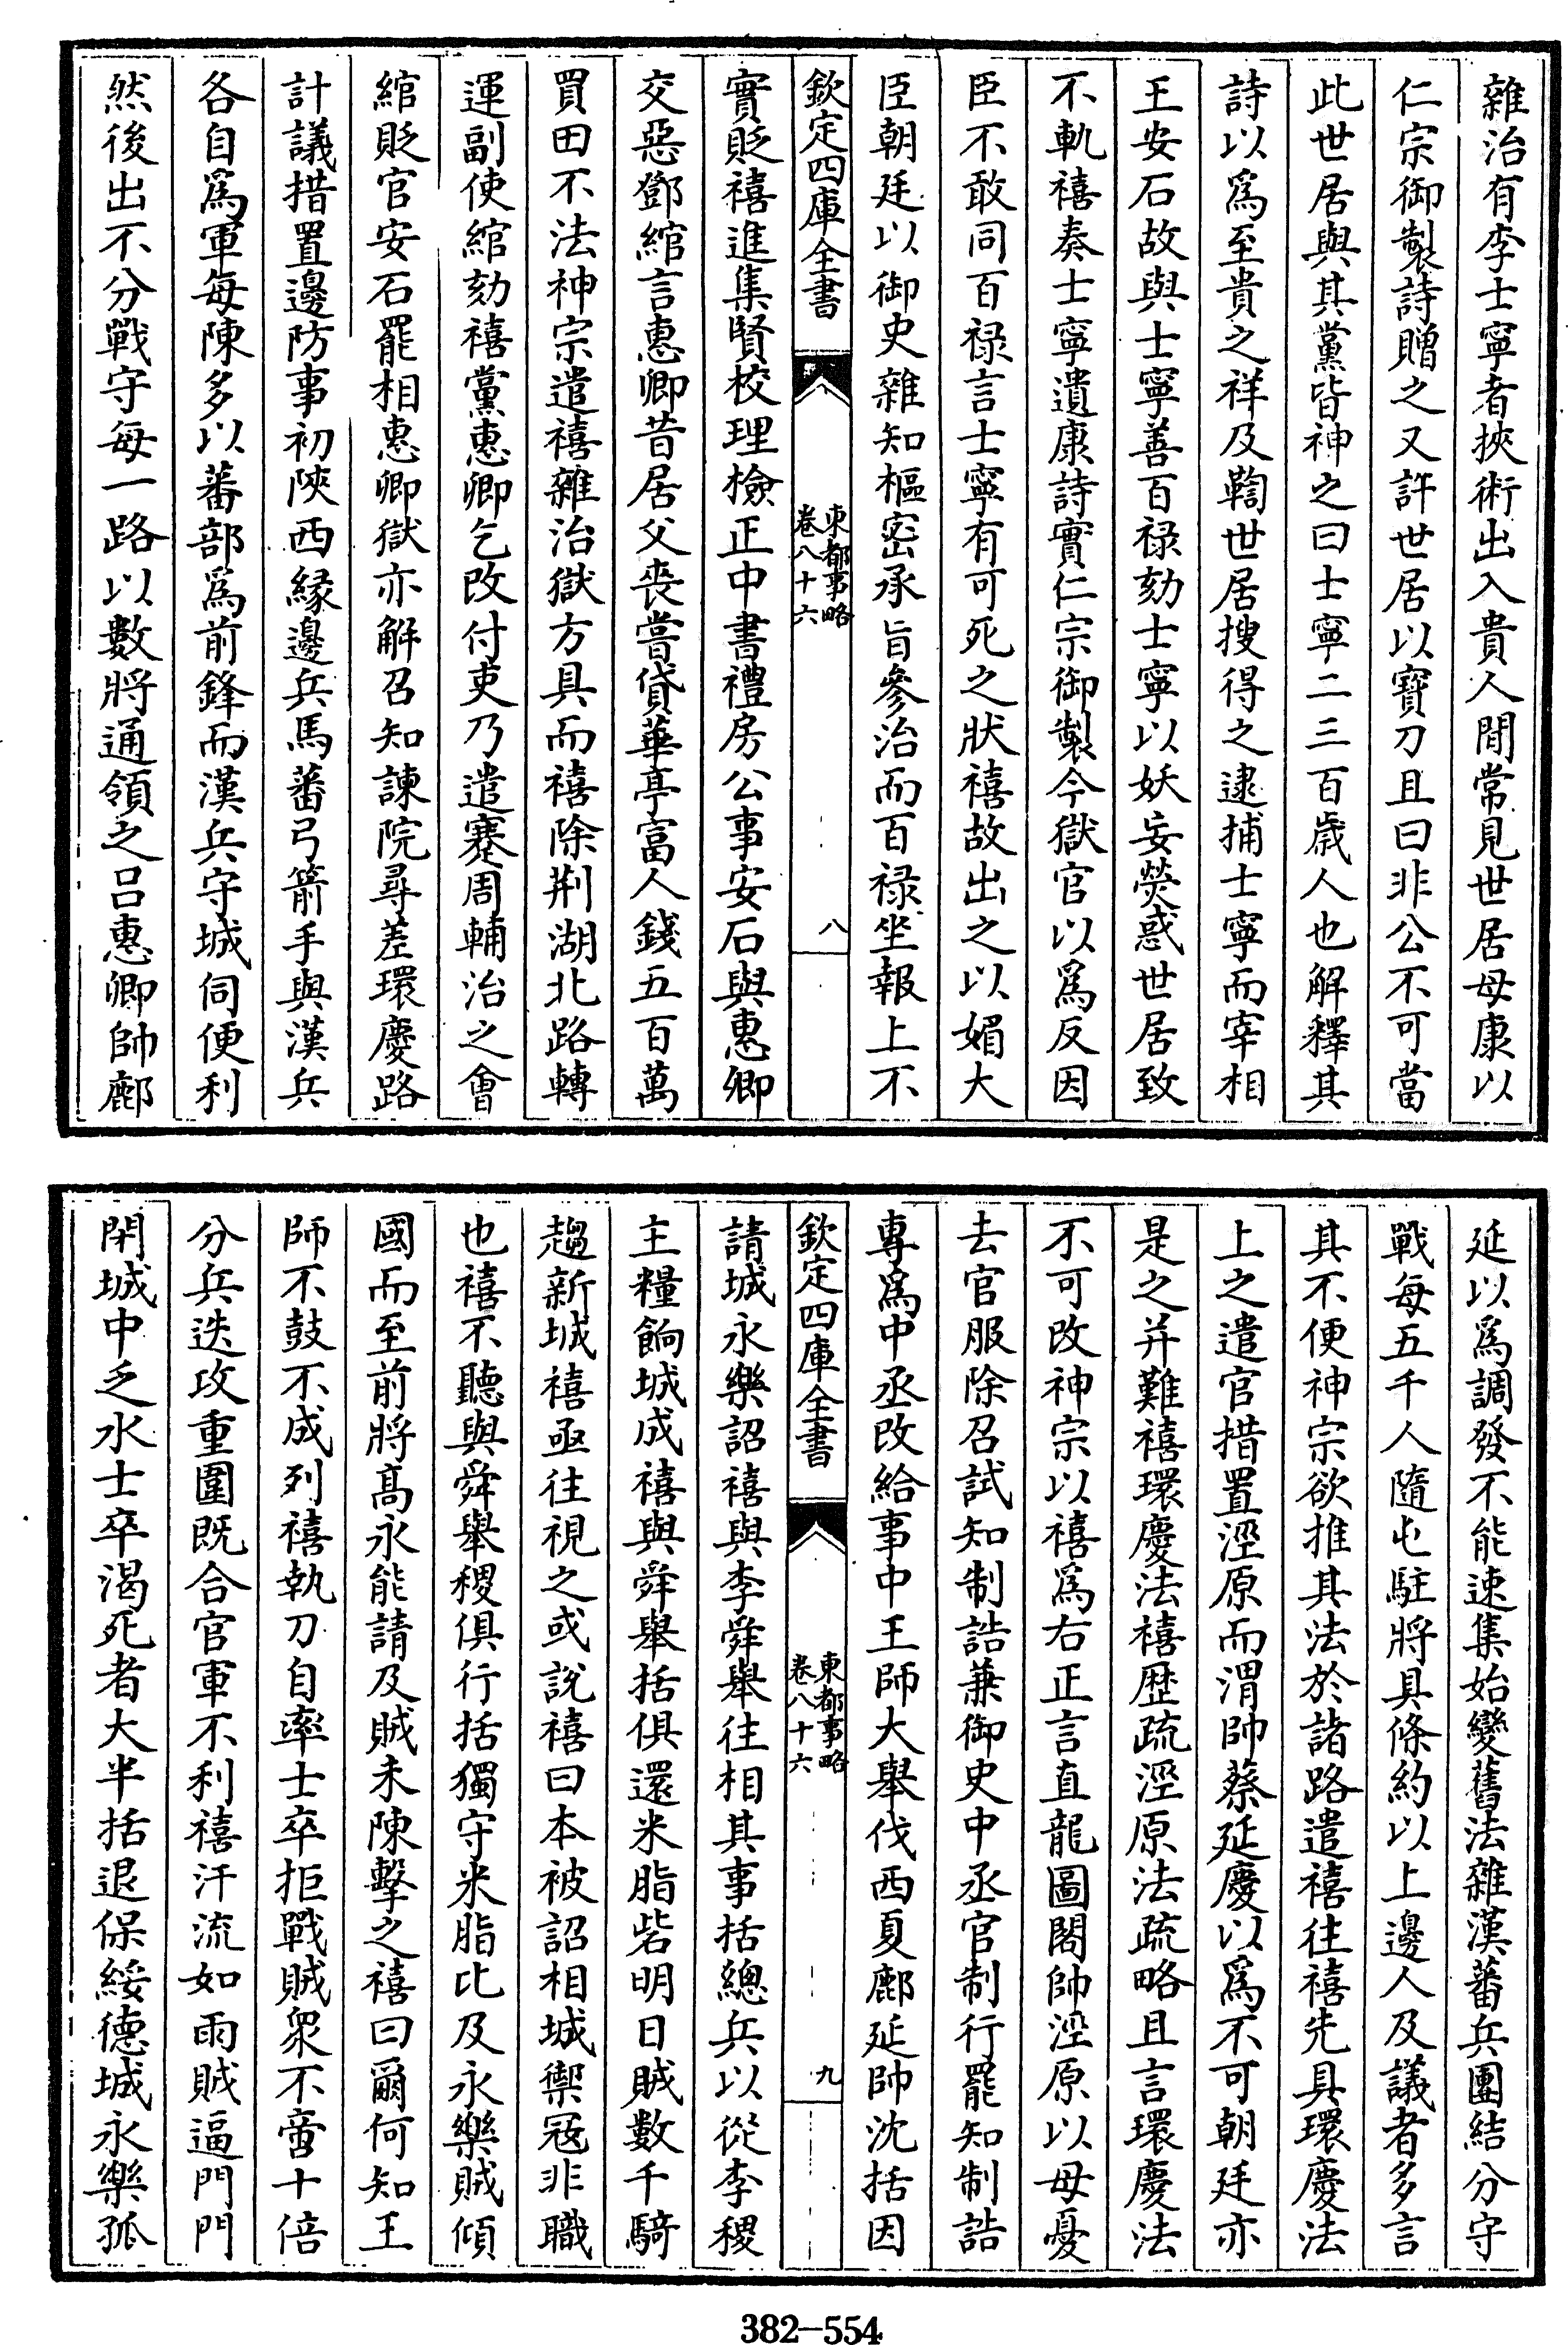 雜治有李士寧者挾術出入貴人間常見世居母康以
仁宗御製詩贈之又許世居以寶刀且曰非公不可當
此世居與其黨皆神之曰士寧二三百歲人也解釋其
詩以為至貴之祥及鞫世居搜得之逮捕士寧而宰相
王安石故與士寧善百禄劾士寧以妖妄熒惑世居致
不軌禧奏士寧遺康詩實仁宗御製今獄官以為反因
臣不敢同百禄言士寧有可死之狀禧故出之以媚大
臣朝廷以御史雜知樞密承旨參治而百禄坐報上不
欽定四庫全書
東都事略
卷八十六
八
實貶禧進集賢校理檢正中書禮房公事安石與惠卿
交惡鄧綰言惠卿昔居父喪嘗貸華亭富人錢五百萬
買田不法神宗遣禧雜治獄方具而禧除荆湖北路轉
運副使綰劾禧黨惠卿乞改付吏乃遣蹇周輔治之會
綰貶官安石罷相惠卿獄亦解召知諫院尋差環慶路
計議措置邊防事初陜西緣邊兵馬蕃弓箭手與漢兵
各自為軍每陳多以蕃部為前鋒而漢兵守城伺便利
然後出不分戰守每一路以數將通領之吕惠卿帥鄜
延以為調發不能速集始變舊法雜漢蕃兵團結分守
戰每五千人隨屯駐將具條約以上邊人及議者多言
其不便神宗欲推其法於諸路遣禧往禧先具環慶法
上之遣官措置涇原而渭帥蔡延慶以為不可朝廷亦
是之并難禧環慶法禧歴疏涇原法疏略且言環慶法
不可改神宗以禧為右正言直龍圖閣帥涇原以母憂
去官服除召試知制誥兼御史中丞官制行罷知制誥
專為中丞改給事中王師大舉伐西夏鄜延帥沈括因
欽定四庫全書
東都事略
卷八十六
九
請城永樂詔禧與李舜舉往相其事括總兵以從李稷
主糧餉城成禧與舜舉括俱還米脂砦明日賊數千騎
趨新城禧亟往視之或說禧曰本被詔相城禦冦非職
也禧不聽與舜舉稷俱行括獨守米脂比及永樂賊傾
國而至前將髙永能請及賊未陳擊之禧曰爾何知王
師不鼓不成列禧執刀自率士卒拒戰賊衆不啻十倍
分兵迭攻重圍既合官軍不利禧汗流如雨賊逼門門
閉城中乏水士卒渴死者大半括退保綏德城永樂孤
382-554